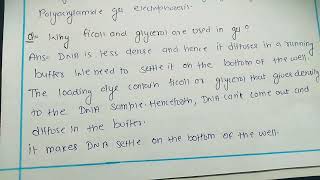 Polyacrylamide gel electrophoresis.
Q:- Why ficoll and glycerol are used in gel ?
Ans= DNA is less dense and hence it diffuses in a running
buffer. We need to settle it on the bottom of the well.
The loading dye contain ficoll or glycerol that gives density
to the DNA sample. Henceforth, DNA can't come out and
diffuse in the buffer.
it makes DNA settle on the bottom of the well.